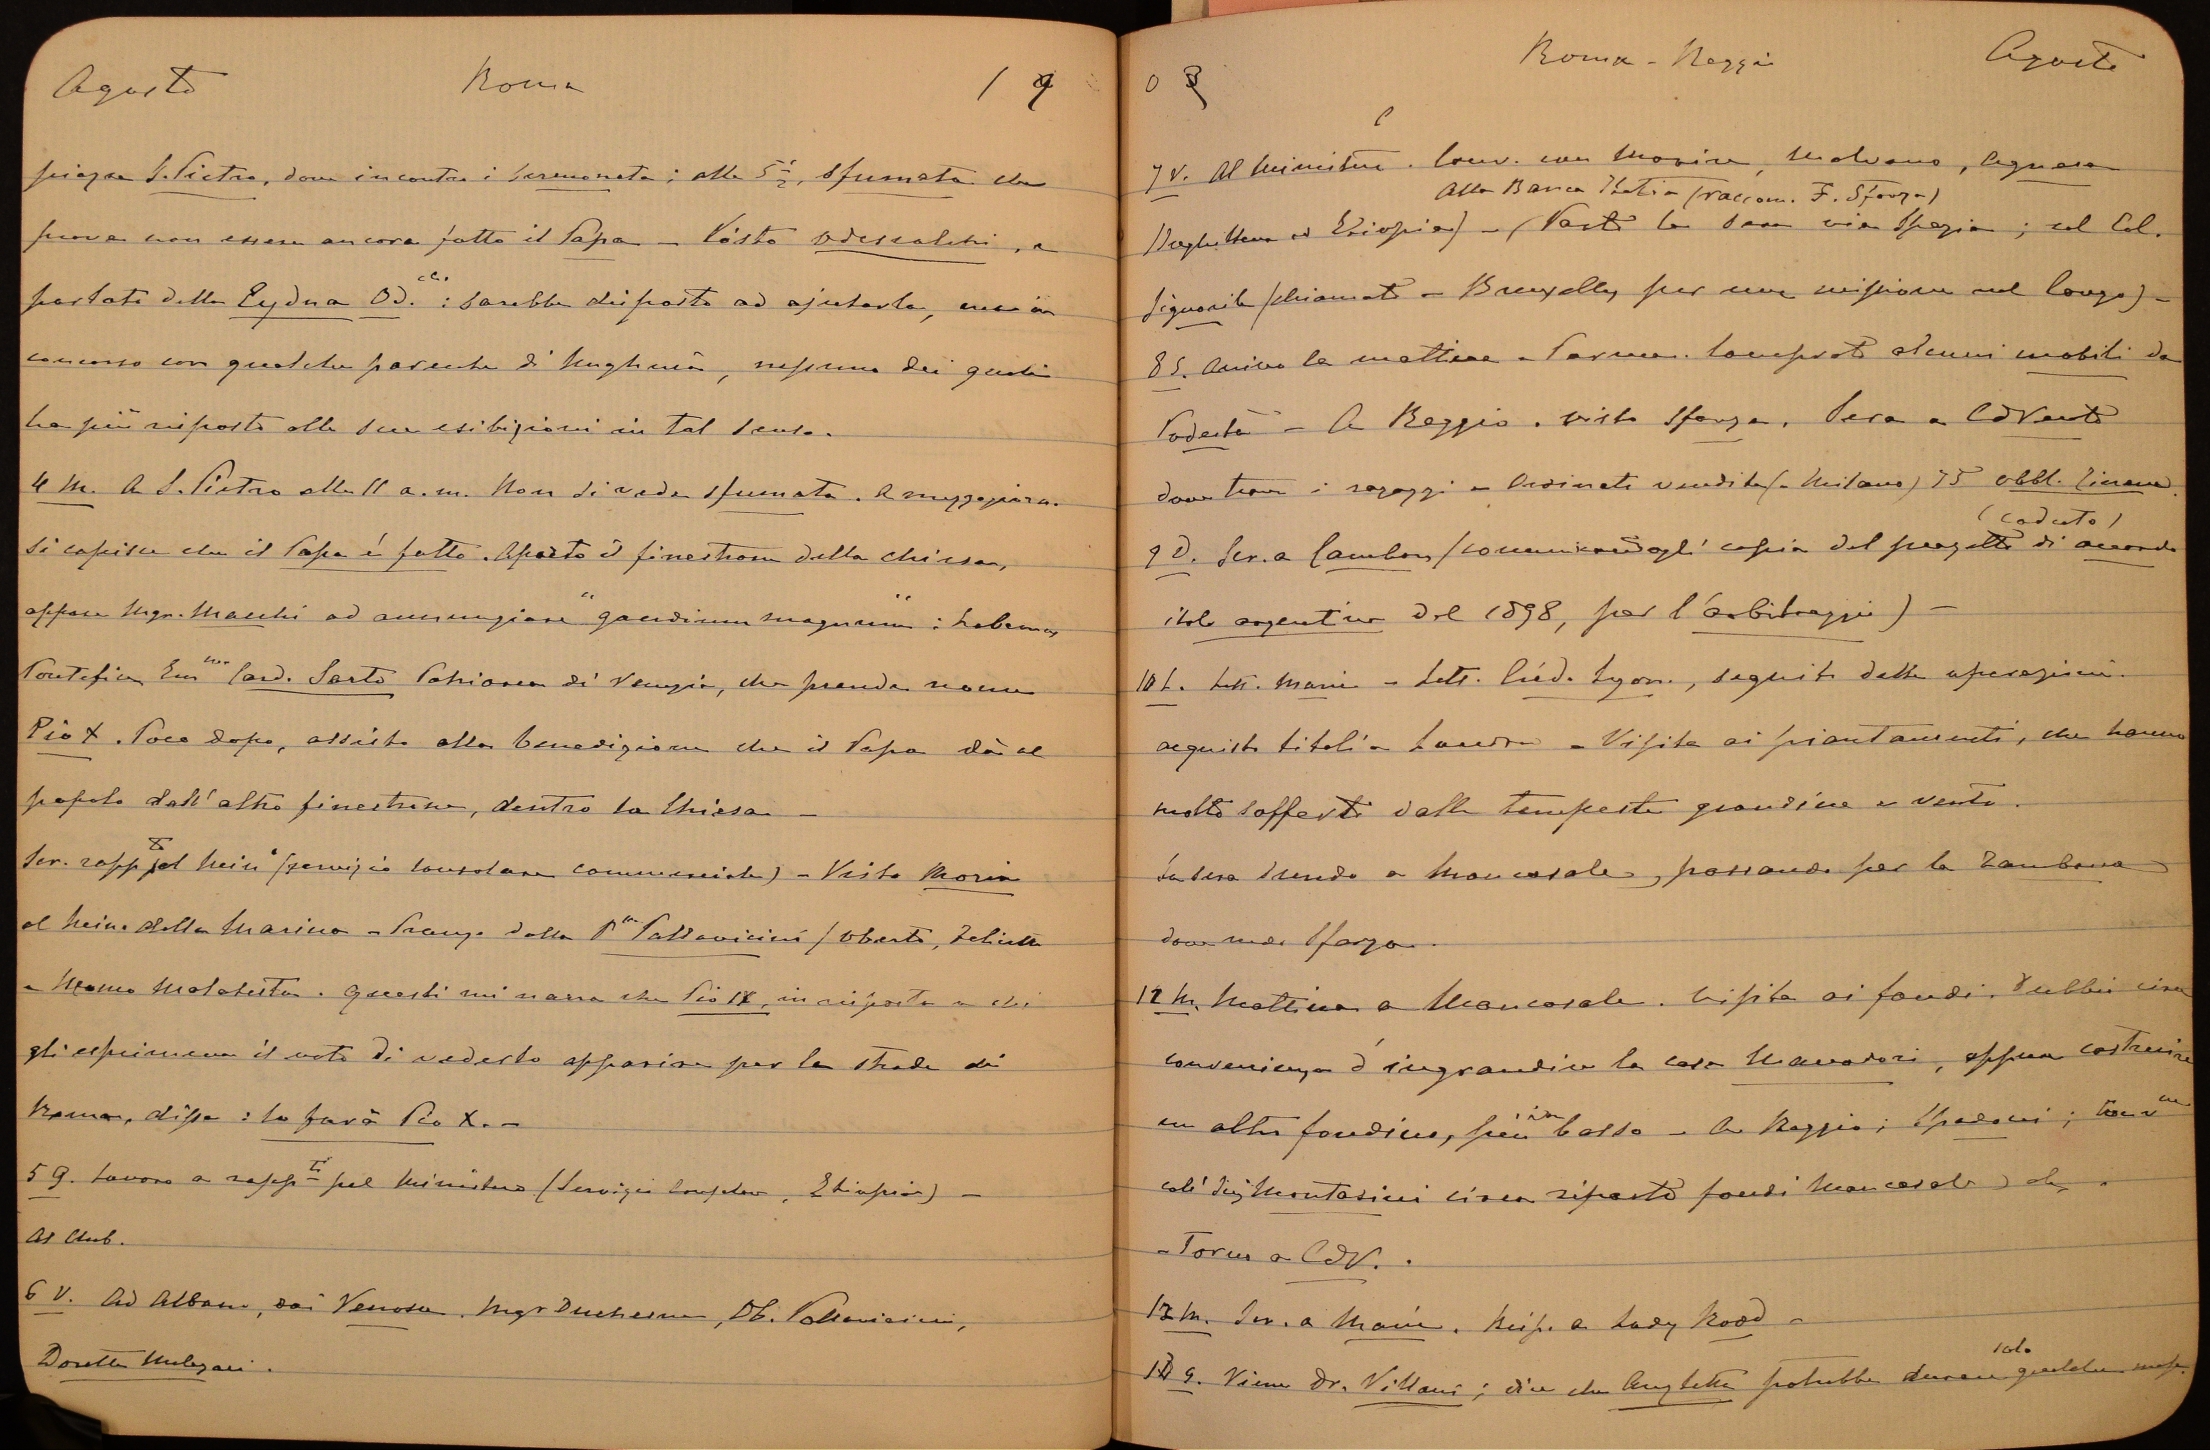 Agosto Roma 19
piazza S. Pietro, dove incontro i Sermoneta; alle 5 1/2, sfumata che
prova non essere ancora fatto il Papa – Visto Odescalchi, e
parlato della Eydua Od.chi: sarebbe disposto ad ajutarla, ma in
concorso con qualche parente di Ungheria, nessuno dei quali
ha più risposto alle sue esibizioni in tal senso.
4 M. A S. Pietro alle 11 a.m. Non si vede sfumata. A mezzogiorno
si capisce che il Papa è fatto. Aperto il finestrone della chiesa,
appare Mgr. Macchi ad annunziare "gaudium magnum": habemus
Ponteficem Emmo Card. Sarto Patriarca di Venezia, che prende nome
Pio X. Poco dopo, assisto alla benedizione che il Papa dà al
popolo dall'altro finestrone, dentro la Chiesa –
Scr. rappto pel Mino (servizio consolare commerciale) – Visto Morin
al Min. della Marina – Pranzo dalla Pssa Pallavicini (Oberto,
e Momo Malatesta. Questi mi narra che Pio IX, in risposta a chi
gli esprimeva il voto di vederlo apparire per le strade di
Roma, disse: lo farà Pio X. –
5 G. Lavoro a rappti pel Ministero (Servizi, Etiopia) –
Al Club.
6 V. Ad Albano, dai Venosa. Mgr Duchesne, Ob. Pallavicini,
Doretta
03 Roma – Reggio Agosto
7 V. Al Ministero. Conv. con Morin, Malvano, Agnesa
Alla Banca Italia (raccom. F. Sforza)
(Inghilterra ed Etiopia) – Parto la sera via Spezia; col Col.
Signorile (chiamato a Bruxelles per una missione nel Congo) –
8 S. Arrivo la mattina a Parma. Comprati alcuni mobili da
Podestà – A Reggio. visto Sforza. Sera a CdVento
dove trovo i ragazzi – Ordinati vendita (a Milano) 75 obbl.
(caduto)
9 D. Scr. a Cambon (comunicandogli copia del progetto di accordo
italo argentino del 1898, per l'arbitraggio) –
10 L. Lett. Marie – Lett. Créd. Lyon., seguito delle operazioni
acquisto titoli a Londra – Visita ai piantamenti, che hanno
molto sofferto dalle tempeste grandine e vento.
La sera scendo a Mancasale, passando per la Zambona
dove vedo Sforza.
11 M. Mattina a Mancasale. Visita ai fondi. Dubbi circa
convenienza d'ingrandire la casa Manodori, oppure costruire
un altro fondino, più in basso – A Reggio; Spadoni;
coll'Ing Montasini circa riparto fondi Mancasale
– Torno a CdV. .
12 M. Scr. a Marie. Risp. a Lady Rodd –
13 G. Viene Dr. Villani; dice che potrebbe durare solo qualche mese.